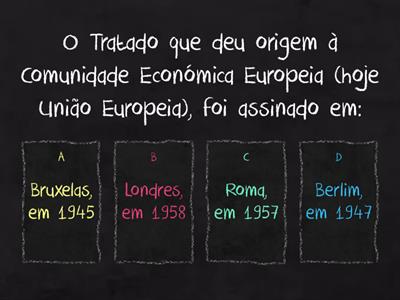 O Tratado que deu origem à
Comunidade Económica Europeia (hoje
União Europeia), foi assinado em:
A
Bruxelas,
em 1945
B
Londres,
em 1958
C
Roma,
em 1957
D
Berlim,
em 1947